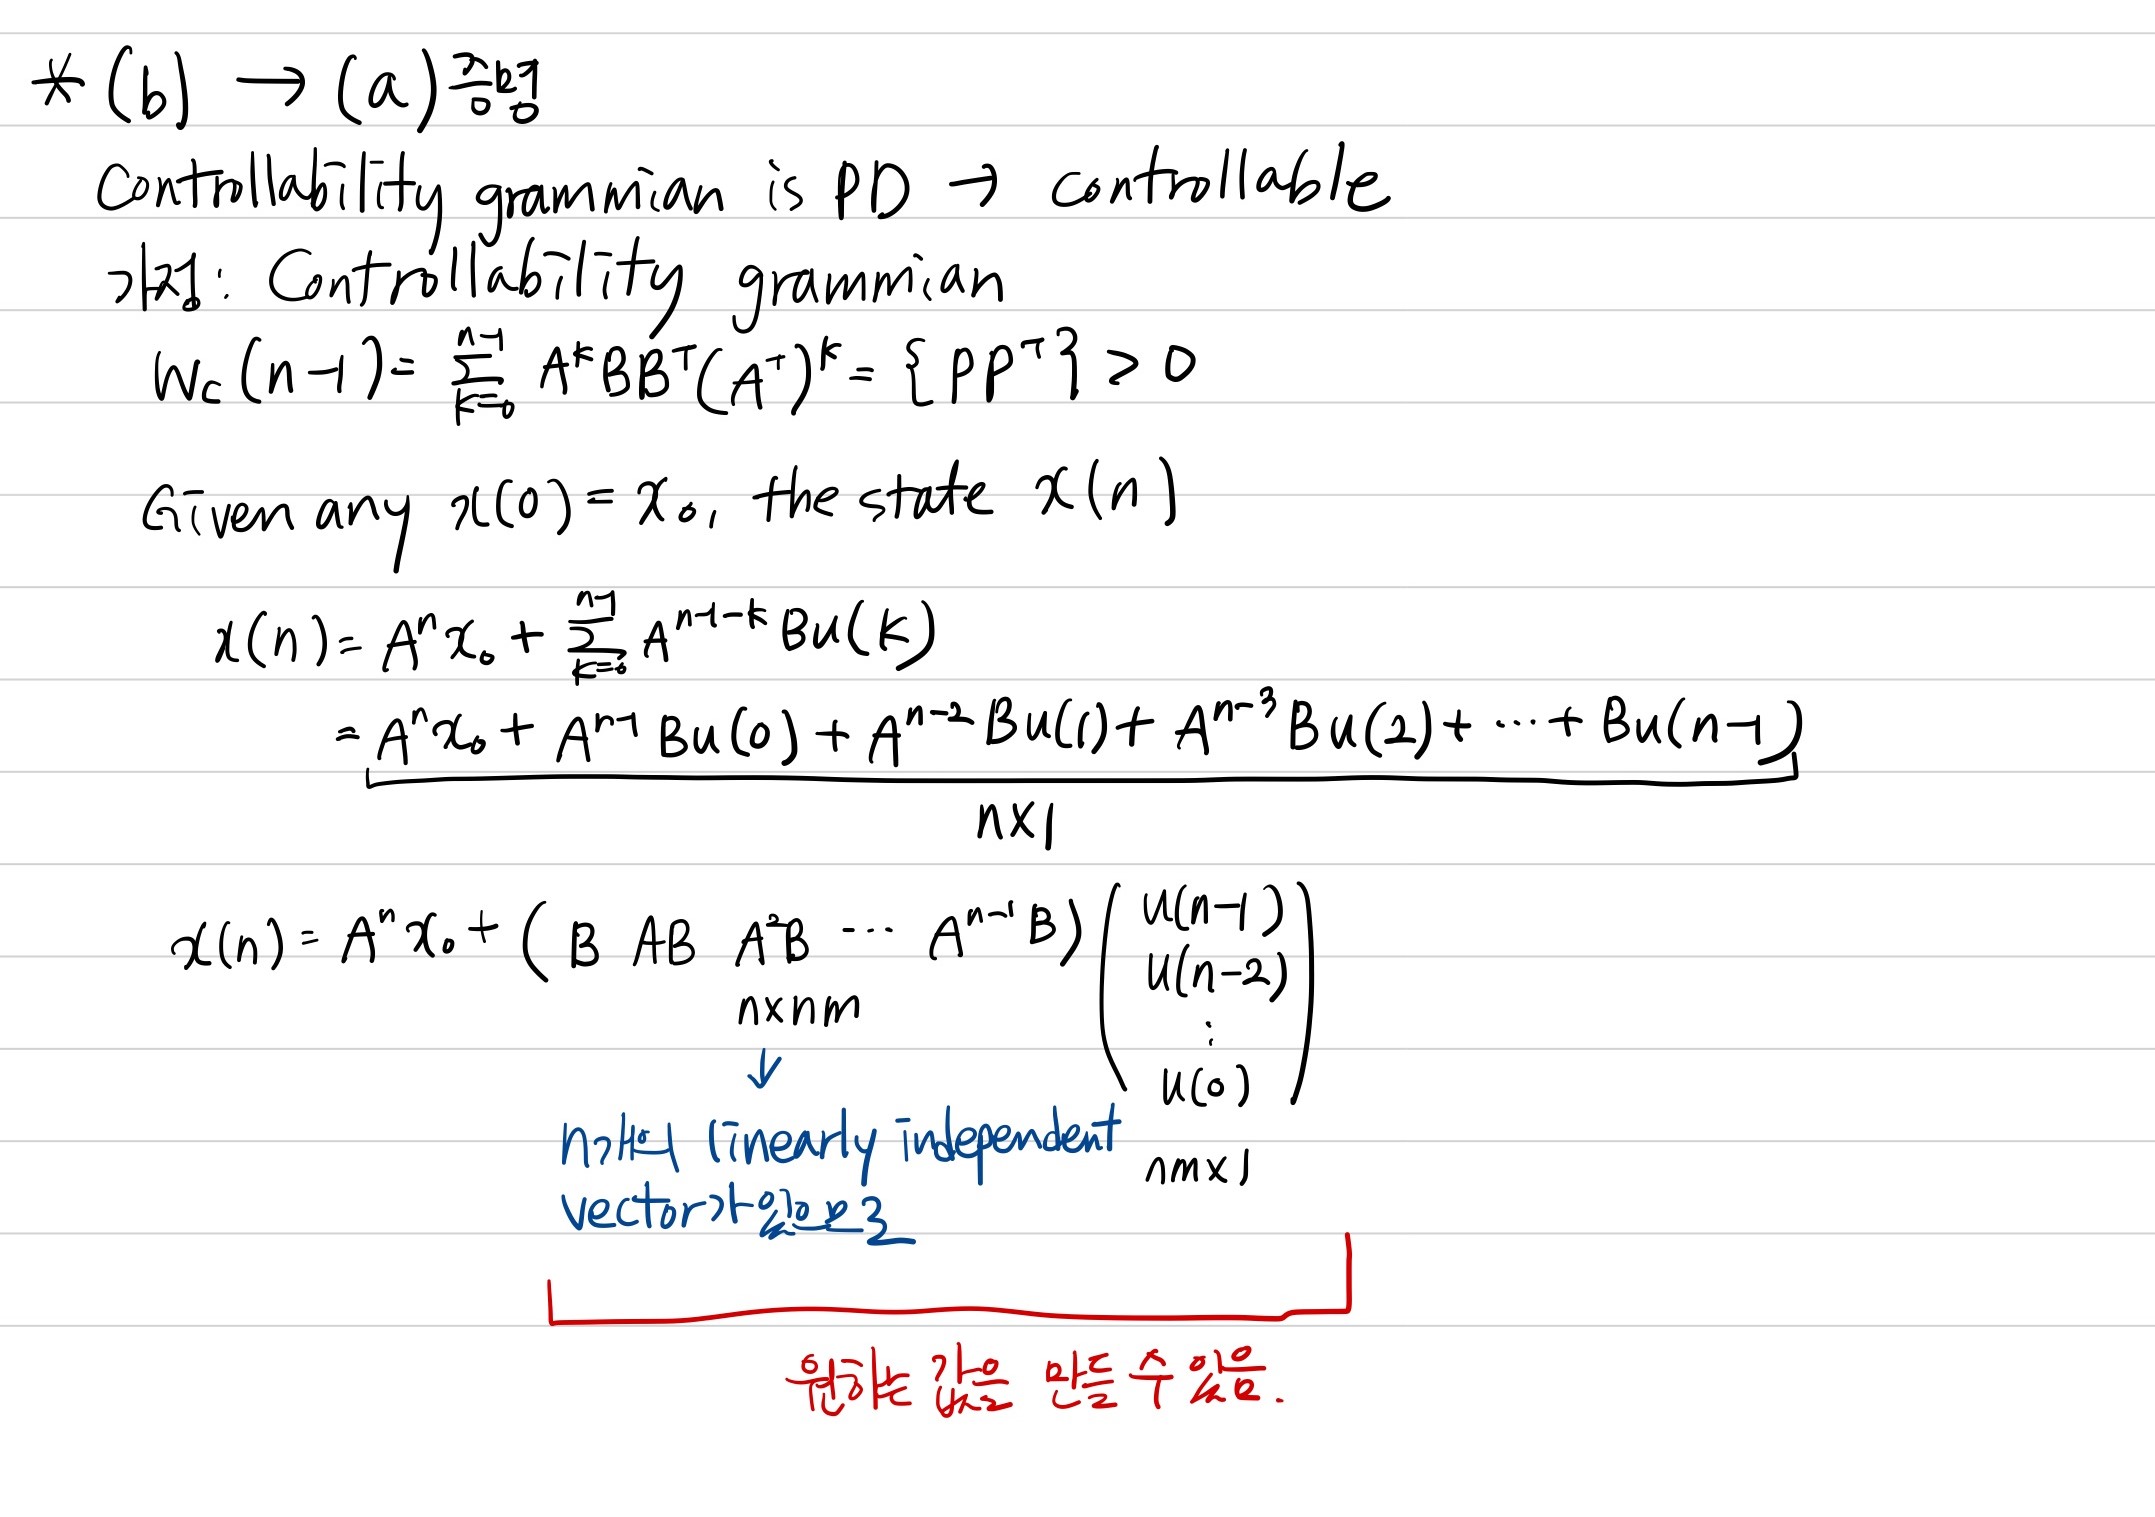 * (b) → (a) 증명
Controllability grammian is PD → controllable
가정: Controllability grammian
Wc(n-1) = Σ_{k=0}^{n-1} A^k B B^T (A^T)^k = {PP^T} > 0
Given any x(0) = x₀, the state x(n)
x(n) = A^n x₀ + Σ_{k=0}^{n-1} A^{n-1-k} Bu(k)
= A^n x₀ + A^{n-1} Bu(0) + A^{n-2} Bu(1) + A^{n-3} Bu(2) + ⋯ + Bu(n-1)
n×1
x(n) = A^n x₀ + ( B AB A²B ⋯ A^{n-1}B ) ( u(n-1)
u(n-2)
⋮
u(0) )
n×nm
↓
n개의 linearly independent
vector가 있으므로
nm×1
원하는 값을 만들 수 있음.